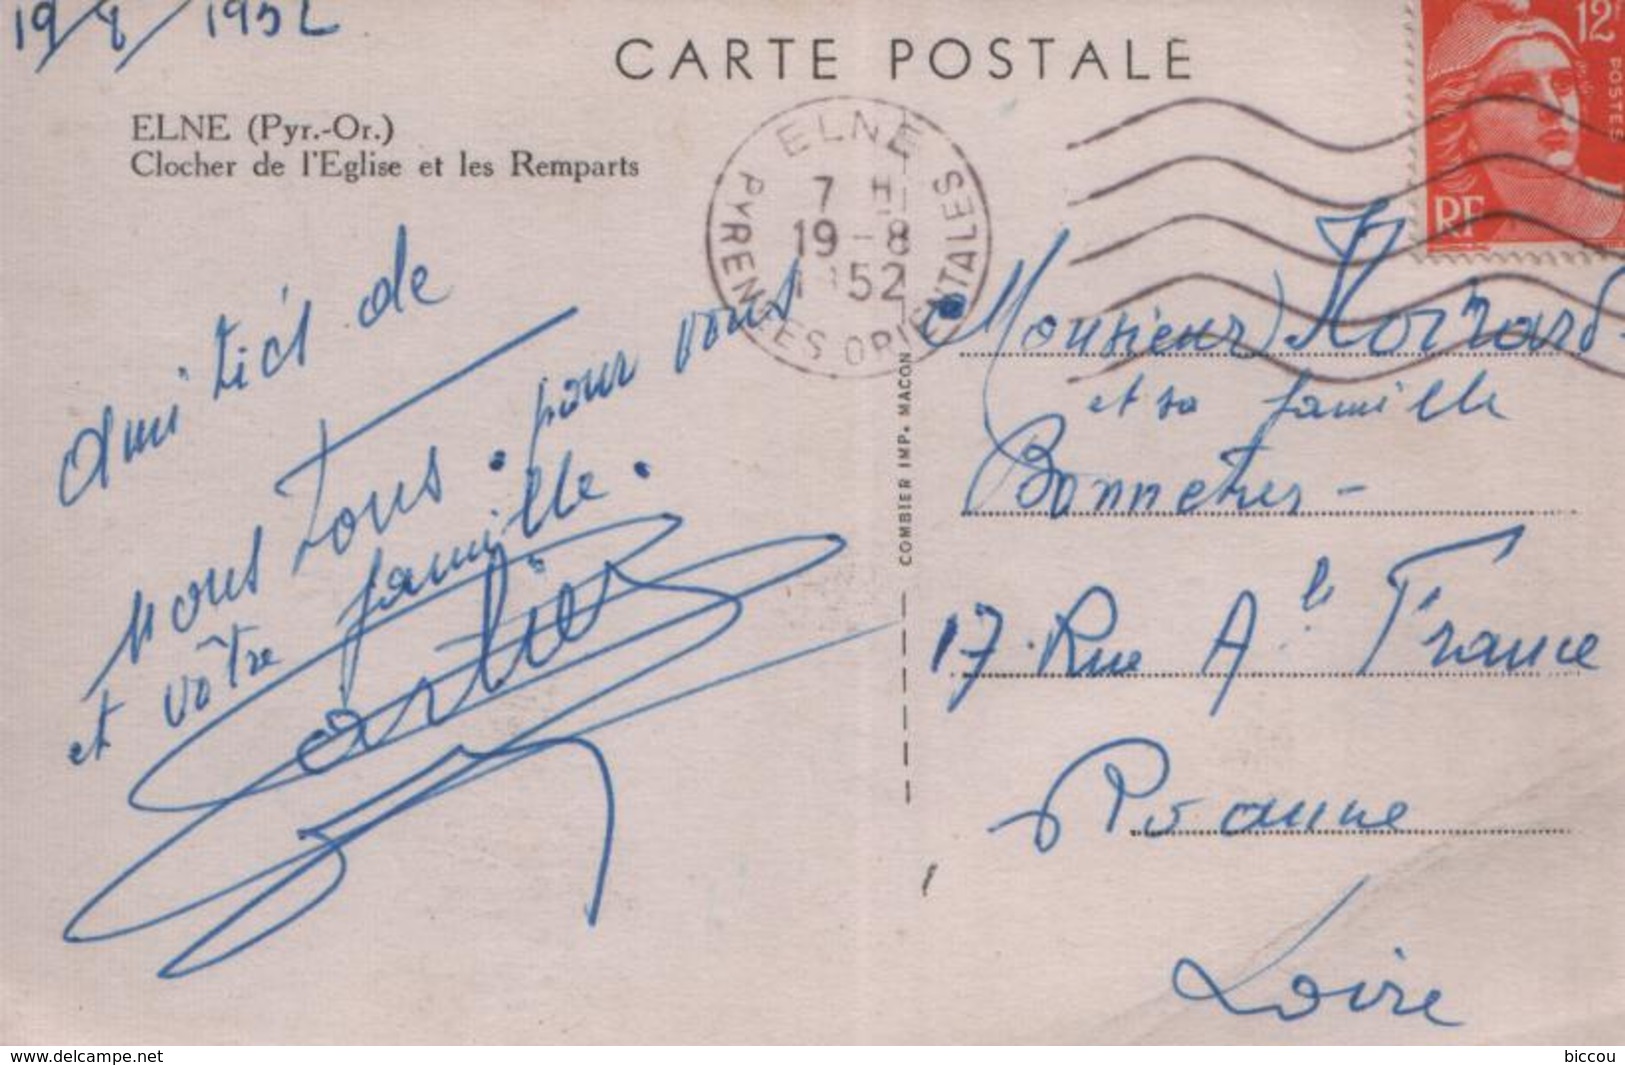 19/8/1952
CARTE POSTALE
12F
POSTES
RF
ELNE (Pyr.-Or.)
Clocher de l'Eglise et les Remparts
ELNE
7 H
19-8
1952
PYRENEES ORIENTALES
amitiés de
nous tous. pour vous
et vôtre famille.
COMBIER IMP. MACON
Monsieur
et sa famille
Bonnetres -
17. Rue Ale France
Roanne
Loire
www.delcampe.net
biccou